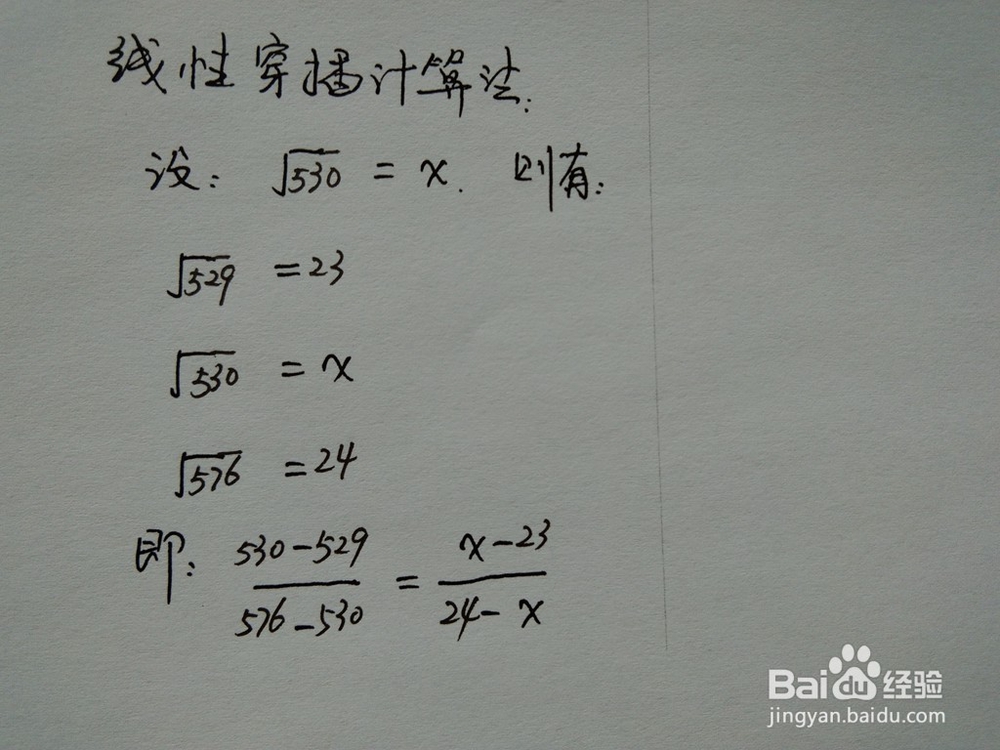 线性穿插计算法:
设: √530 = x. 则有:
√529 = 23
√530 = x
√576 = 24
即: (530-529)/(576-530) = (x-23)/(24-x)
Baidu 经验
jingyan.baidu.com